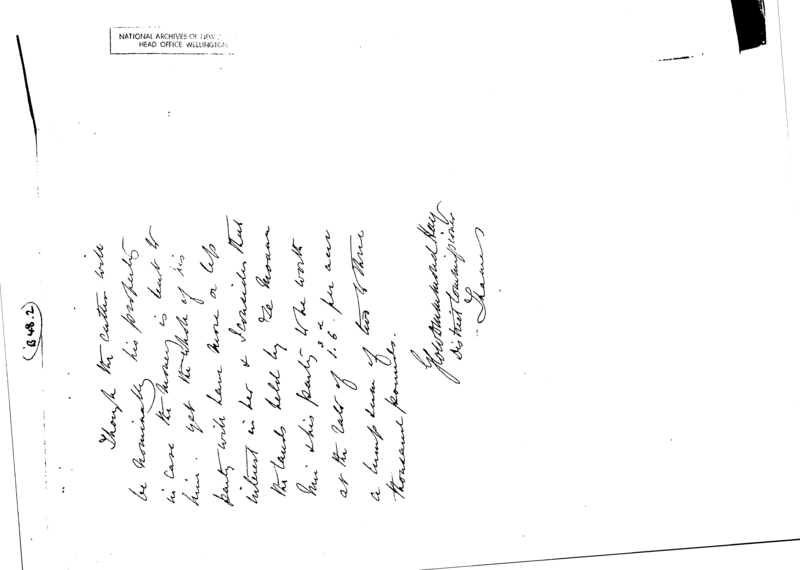 NATIONAL ARCHIVES OF NEW
HEAD OFFICE WELLINGTON
(B 48.2)
Though the Cutter will
be nominally his property
in case the money is lent to
him. Yet the whole of his
party will have more or less
interest in her & I consider that
the lands held by Te Moana
Nui & his party to be worth
at the rate of 1s.6d. per acre
a lump sum of two to three
thousand pounds.
Drummond Hay
District Commissioner
Thames